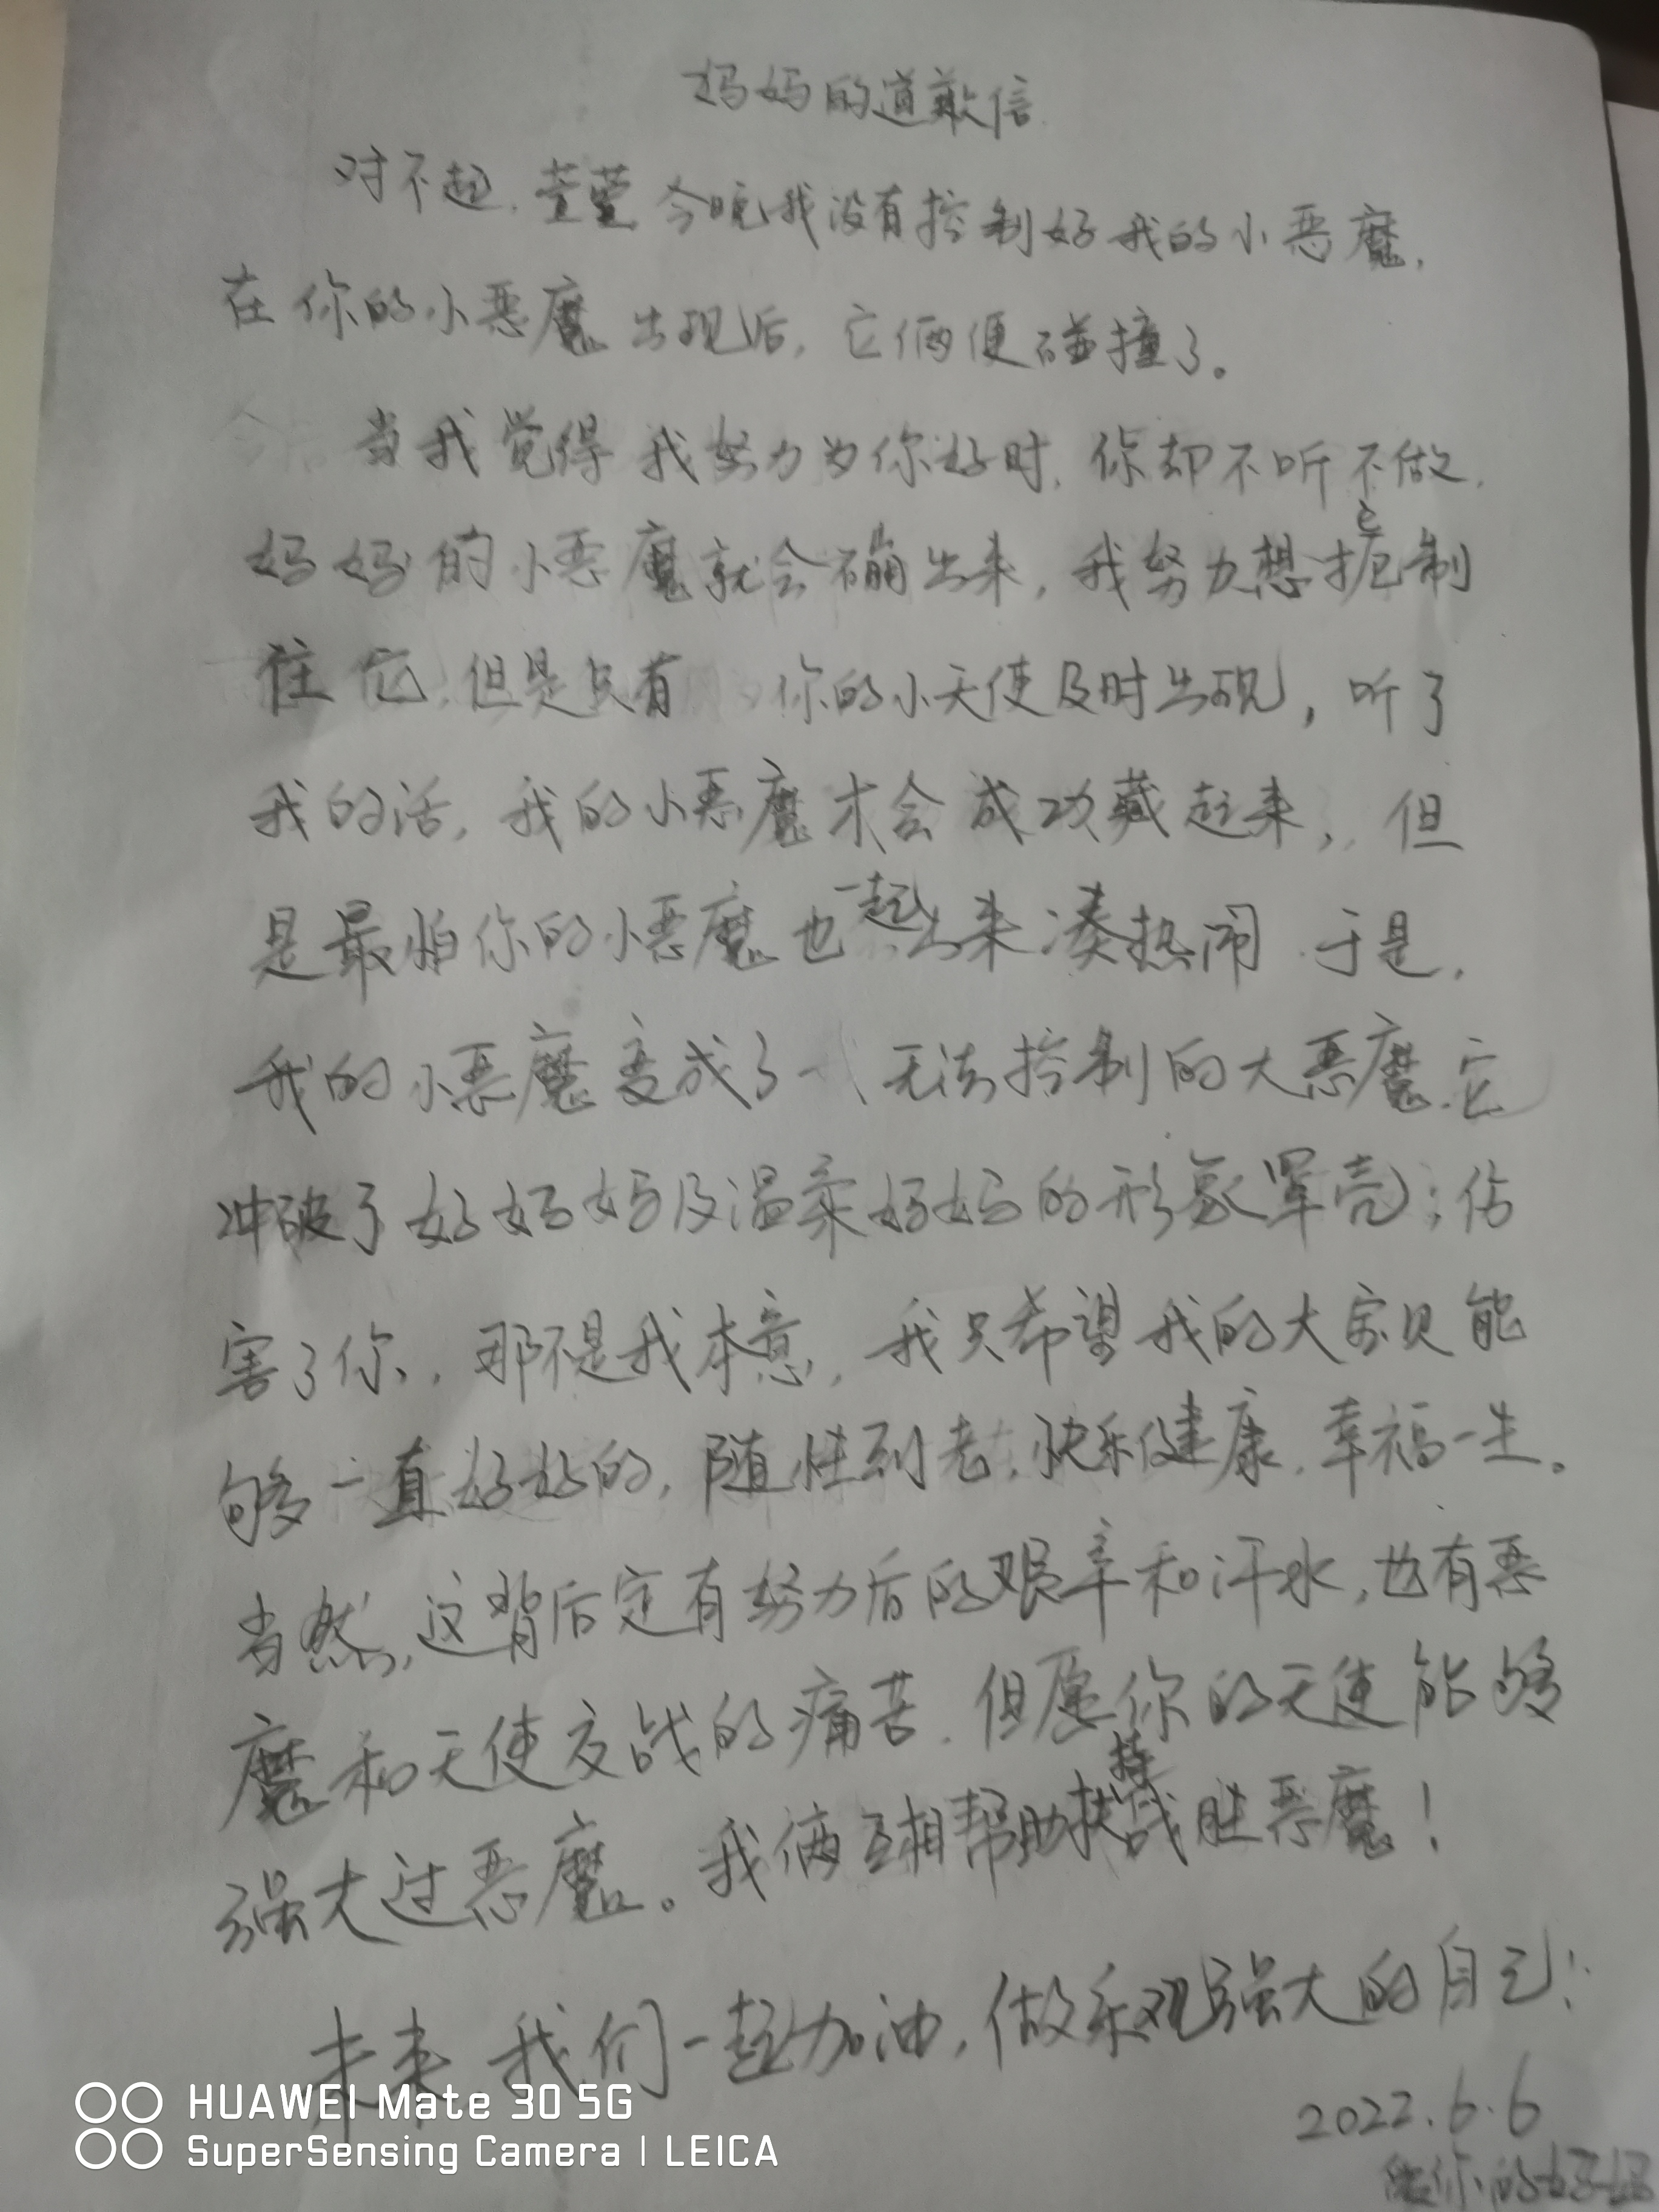 妈妈的道歉信
对不起,萱萱 今晚我没有控制好我的小恶魔,
在你的小恶魔出现后,它俩便碰撞了。
当我觉得我努力为你好时,你却不听不做,
妈妈的小恶魔就会崩出来,我努力想扼制
è
住它,但是只有你的小天使及时出现,听了
我的话,我的小恶魔才会成功藏起来,但
是最怕你的小恶魔也一起出来凑热闹 于是,
我的小恶魔变成了一个无法控制的大恶魔,它
冲破了好妈妈及温柔妈妈的形象罩壳;伤
害了你,那不是我本意,我只希望我的大宝贝能
够一直好好的,随性到老,快乐健康,幸福一生。
当然,这背后定有努力后的艰辛和汗水,也有恶
魔和天使交战的痛苦,但愿你的天使能够
强大过恶魔。我俩互相帮助扶持战胜恶魔!
未来 我们一起加油,做乐观强大的自己!
2022.6.6
你的妈妈
HUAWEI Mate 30 5G
SuperSensing Camera | LEICA